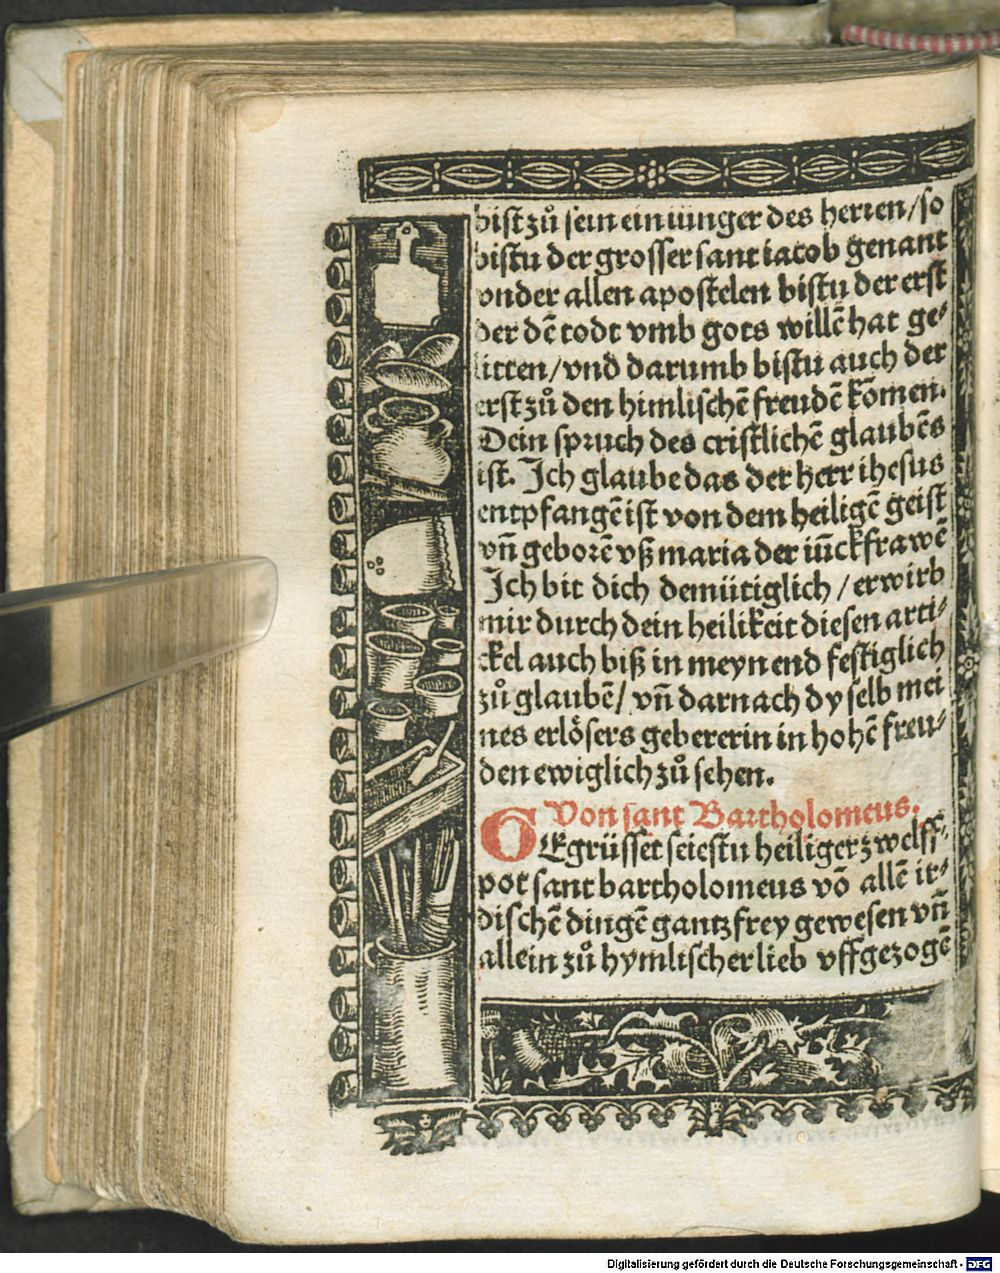 bist zů sein ein iünger des herren/so
bistu der grosser sant iacob genant
vnder allen apostelen bistu der erst
der dē todt vmb gots willē hat ge⸗
litten/vnd darumb bistu auch der
erst zů den himlischē freudē kōmen.
Dein spruch des cristlichē glaubēs
ist. Ich glaube das der herr ihesus
entpfangē ist von dem heiligē geist
vn̄ geborē vß maria der iūckfrawē
Ich bit dich demütiglich/erwirb
mir durch dein heilikeit diesen arti⸗
ckel auch biß in meyn end festiglich
zů glaubē/ vn̄ darnach dy selb mei
nes erlösers gebererin in hohē freu⸗
den ewiglich zů sehen.
Von sant Bartholomeus.
GEgrüsset seiestu heiliger zwelff⸗
pot sant bartholomeus vō allē ir⸗
dischē dingē gantz frey gewesen vn̄
allein zů hymlischer lieb vffgezogē
Digitalisierung gefördert durch die Deutsche Forschungsgemeinschaft - DFG